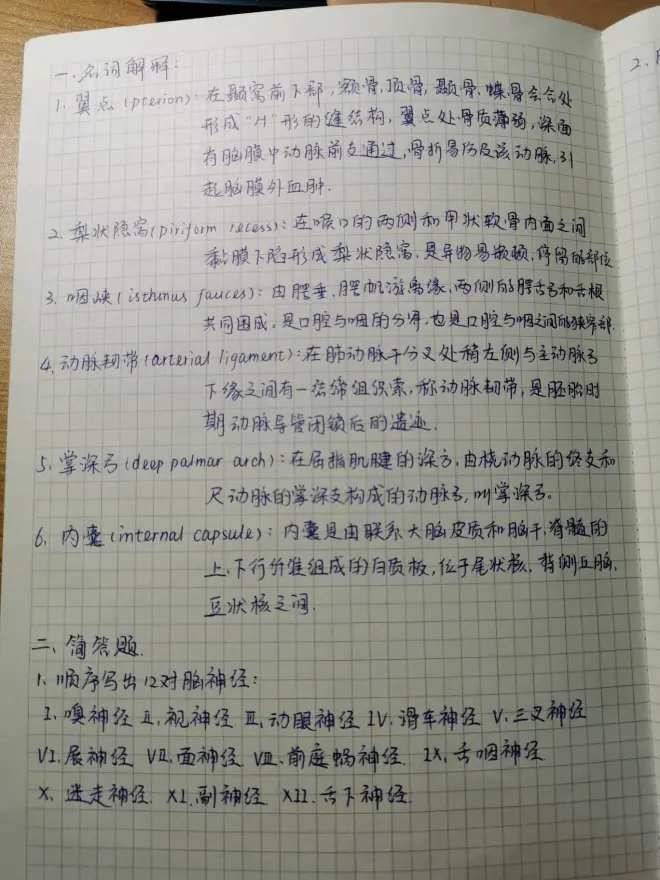 一、名词解释:
1. 翼点(pterion): 在颞窝前下部,额骨,顶骨,颞骨,蝶骨会合处
形成“H”形的缝结构,翼点处骨质薄弱,深面
有脑膜中动脉前支通过,骨折易伤及该动脉,引
起脑膜外血肿.
2. 梨状隐窝(piriform recess): 在喉口的两侧和甲状软骨内面之间
黏膜下陷形成梨状隐窝,是异物易嵌顿,停留的部位
3. 咽峡(isthmus fauces): 由腭垂、腭帆游离缘,两侧的腭舌弓和舌根
共同围成,是口腔与咽的分界,也是口腔与咽之间的狭窄部.
4. 动脉韧带(arterial ligament): 在肺动脉干分叉处稍左侧与主动脉弓
下缘之间有一结缔组织索,称动脉韧带,是胚胎时
期动脉导管闭锁后的遗迹.
5. 掌深弓(deep palmar arch): 在屈指肌腱的深方,由桡动脉的终支和
尺动脉的掌深支构成的动脉弓,叫掌深弓。
6. 内囊(internal capsule): 内囊是由联系大脑皮质和脑干,脊髓的
上,下行纤维组成的白质板,位于尾状核,背侧丘脑,
豆状核之间.
二、简答题.
1、顺序写出12对脑神经:
I、嗅神经 II、视神经 III、动眼神经 IV、滑车神经 V、三叉神经
VI.展神经 VII、面神经 VIII、前庭蜗神经 IX、舌咽神经
X、迷走神经. XI.副神经. XII.舌下神经.
2.